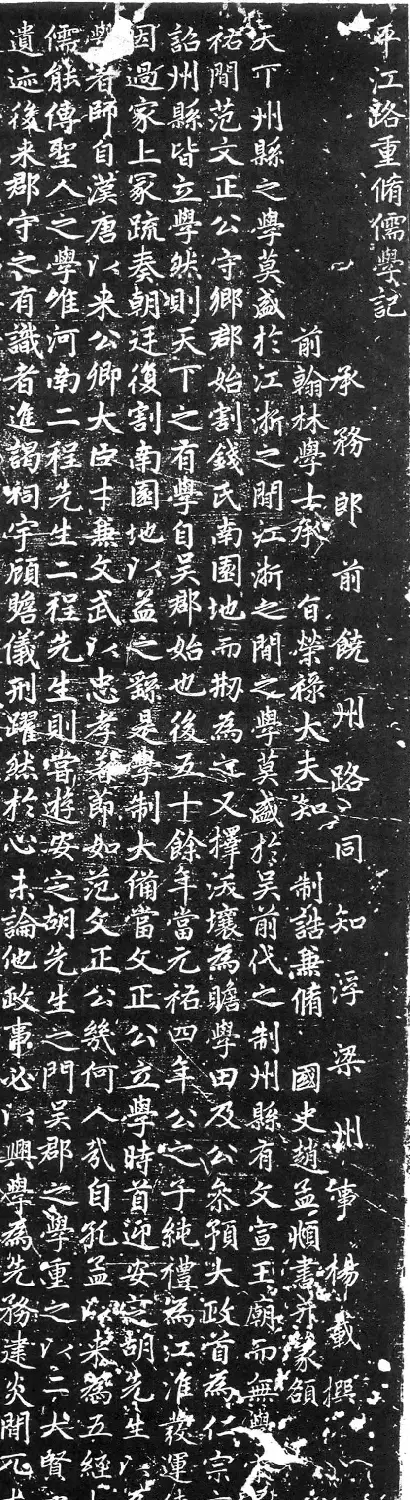 平江路重脩儒學記
承務郎前饒州路同知浮梁州事楊載撰
前翰林學士承旨榮祿大夫知制誥兼脩國史趙孟頫書并篆額
天下州縣之學莫盛於江浙之間江浙之間之學莫盛於吳前代之制州縣有文宣王廟而無學
祐間范文正公守鄉郡始割錢氏南園地而刱為之又擇沃壤為贍學田及公叅預大政首為仁宗
詔州縣皆立學然則天下之有學自吳郡始也後五十餘年當元祐四年公之子純禮為江淮發運
因過家上冢疏奏朝廷復割南園地以益之繇是學制大備當文正公立學時首迎安定胡先生以
學者師自漢唐以来公卿大臣士兼文武以忠孝著節如范文正公幾何人㢤自孔孟以来為五經
儒能傳聖人之學唯河南二程先生二程先生則當遊安定胡先生之門吳郡之學重之以二大賢
遺迹後来郡守之有識者進謁祠宇顧瞻儀刑躍然於心未論他政事必以興學為先務建炎間兀